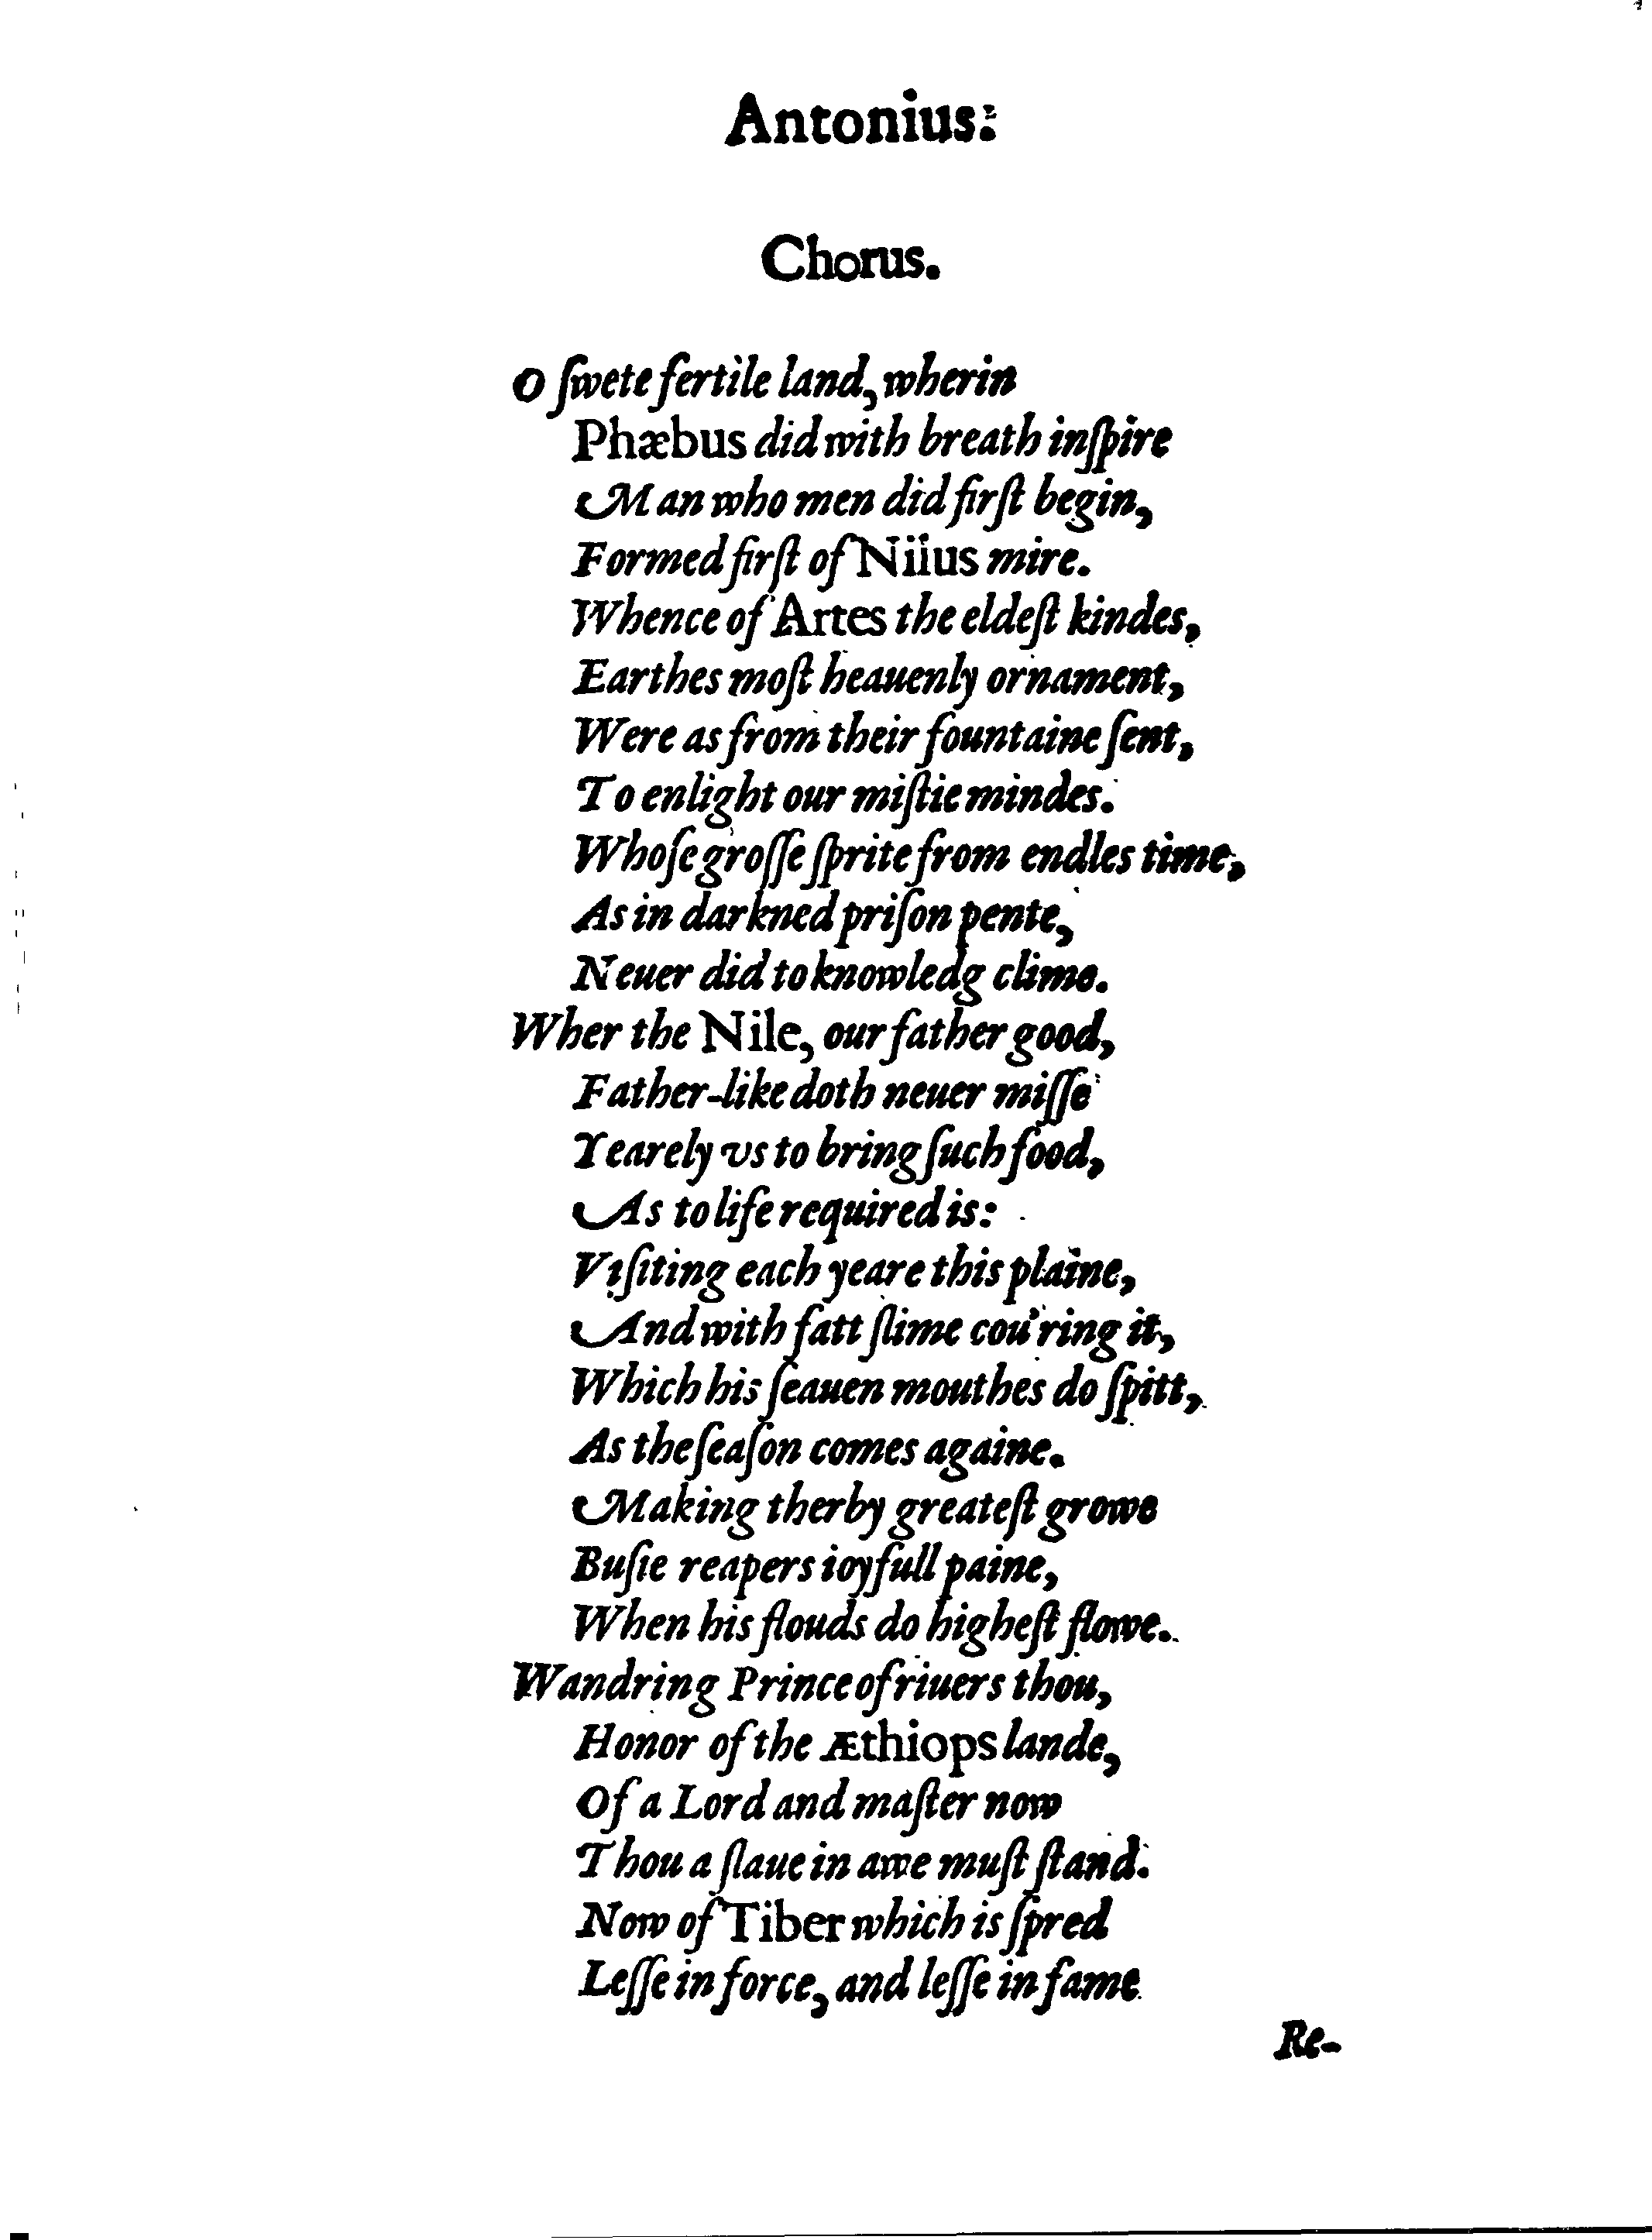 Antonius:
Chorus.
O ſwete fertile land, wherin
Phæbus did with breath inſpire
Man who men did firſt begin,
Formed firſt of Nilus mire.
Whence of Artes the eldeſt kindes,
Earthes moſt heauenly ornament,
Were as from their fountaine ſent,
To enlight our miſtie mindes.
Whoſe groſſe ſprite from endles time,
As in darkned priſon pente,
Neuer did to knowledg clime.
Wher the Nile, our father good,
Father-like doth neuer miſſe
Yearely vs to bring ſuch food,
As to life required is:
Viſiting each yeare this plaine,
And with fatt ſlime cou'ring it,
Which his ſeauen mouthes do ſpitt,
As the ſeaſon comes againe.
Making therby greateſt growe
Buſie reapers ioyfull paine,
When his flouds do higheſt flowe.
Wandring Prince of riuers thou,
Honor of the Æthiops lande,
Of a Lord and maſter now
Thou a ſlaue in awe muſt ſtand.
Now of Tiber which is ſpred
Leſſe in force, and leſſe in fame
Re-